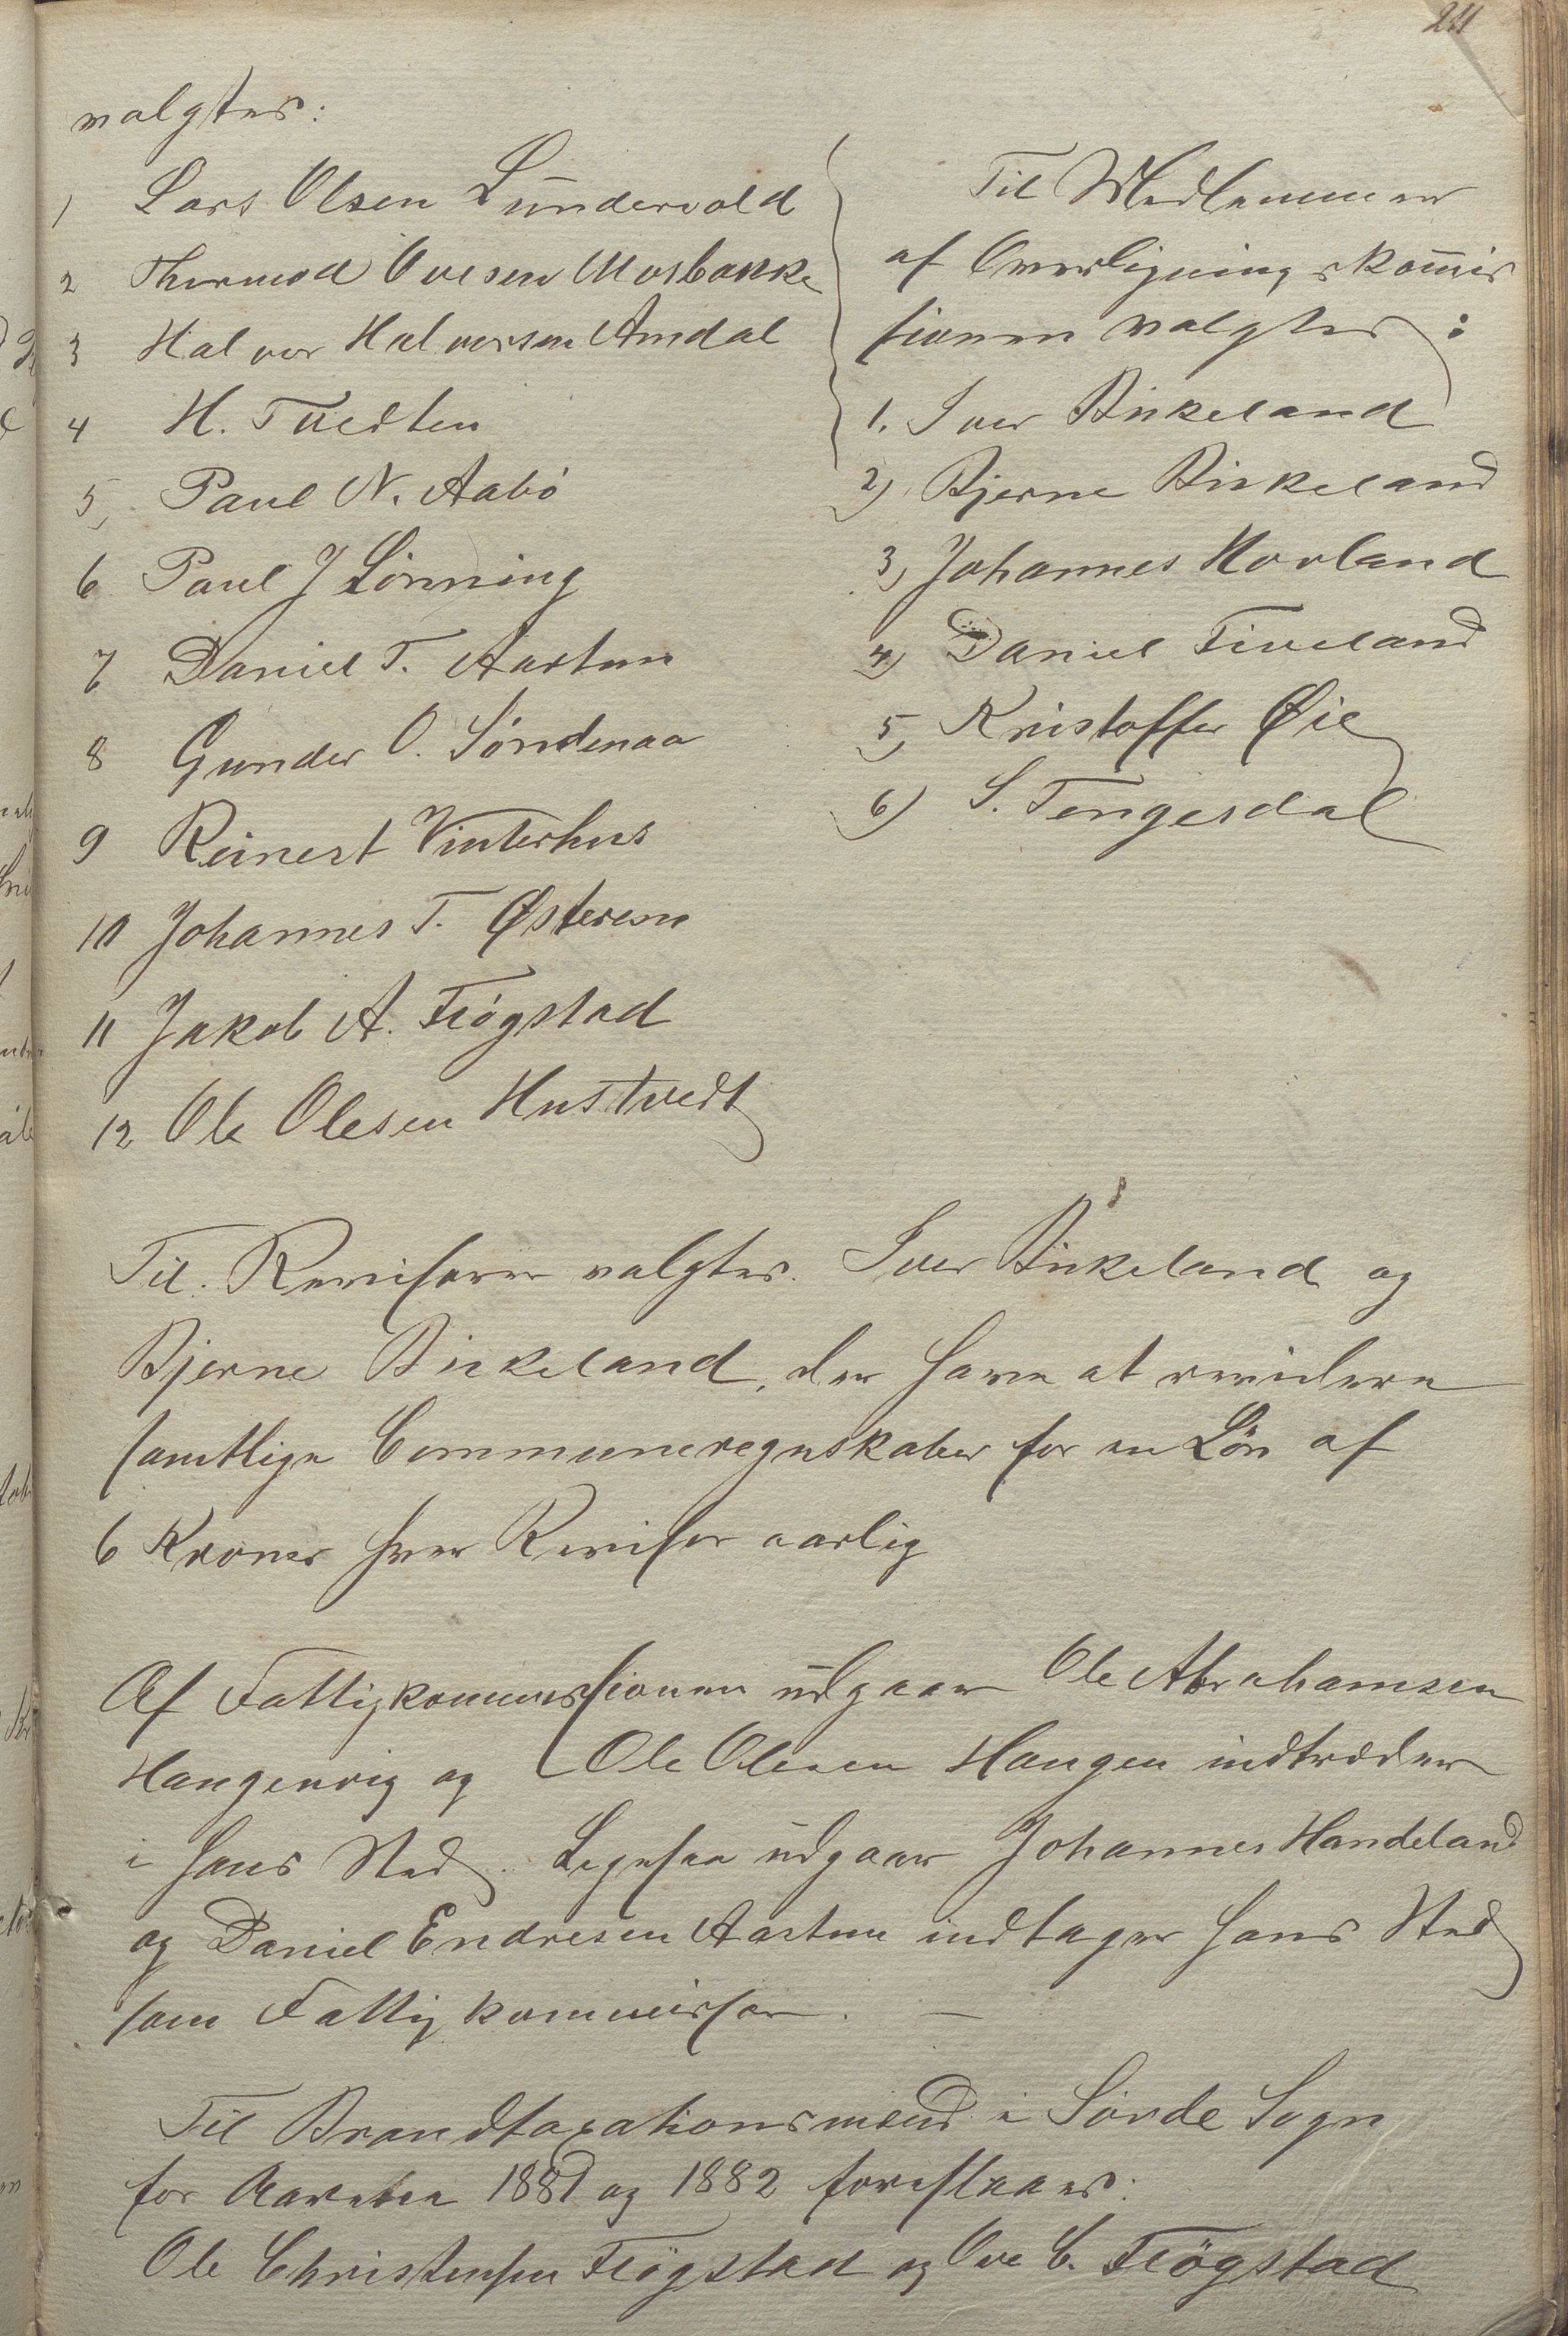 211
valgtes:
1 Lars Olsen Lundervold
2 Thormod Ovesen Mosbække
3 Halvor Halvorsen Amdal
4 H. Tvedten
5, Paul N. Aabö
6 Paul J Lönning
7 Daniel T. Aartun
8 Gunder O. Söndenaa
9 Reinert Vinterhus
10 Johannes T. Østerem
11 Jakob A. Fiögstad
12 Ole Olesen Hustvedt
Til Medlemmer
af Overligningskommis
sionen valgtes:
1. Iver Birkeland
2) Bjerne Birkeland
3) Johannes Hovland
4) Daniel Tiveland
5, Kristoffer Øie
6) S. Tengesdal
Til Revisorer valgtes. Iver Birkeland og
Bjerne Birkeland, der have at revidere
samtlige Communeregnskaber for en Lön af
6 Kroner hver Revisor aarlig
Af Fattigkommissionen udgaar Ole Abrahamsen
Haugenvig og Ole Olesen Haugen indtræder
i hans Sted. Ligesaa udgaar Johannes Handeland
og Daniel Endresen Aartun indtager hans Sted
som Fattigkommissær. –
Til Brandtaxationsmænd i Sövde Sogn
for Aarene 1881 og 1882 foreslaaes:
Ole Christensen Fiögstad og Ove C. Fiögstad